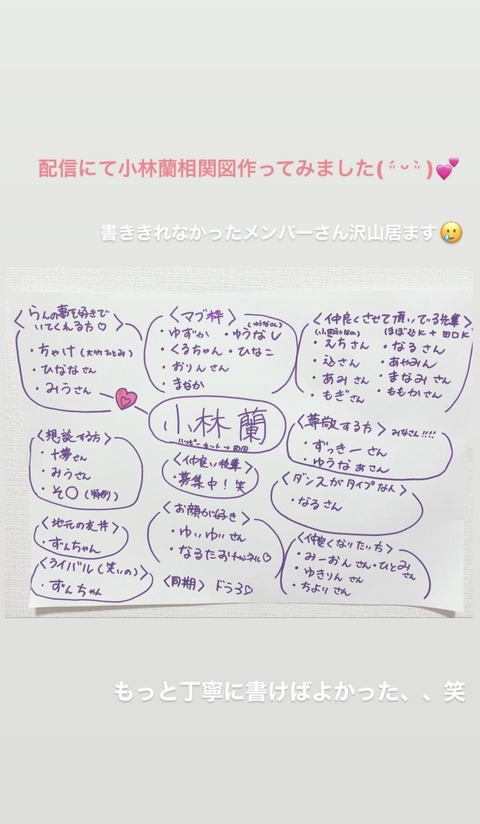 配信にて小林蘭相関図作ってみました( ˊᵕˋ )💕
書ききれなかったメンバーさん沢山居ます🥲
〈らんの事を好きで
いてくれる方♡〉
・ちゃけ(大竹ひとみ)
・ひななさん
・みうさん
〈マブ枠〉
・ゆずか ・ゆうなし
・くるちゃん・ひなこ
・おりんさん
・まなか
〈仲良くさせて頂いている先輩〉
・えちさん ・なるさん
・込さん ・あやみん
・あみさん ・まなみさん
・もぎさん ・ももかさん
小林蘭
〈尊敬する方〉みなさん!!!!
・ずっきーさん
・ゆうなぁさん
〈想談する方〉
・十夢さん
・みうさん
・そ○(特例)
〈仲良い後輩〉
・募集中!笑
〈ダンスがタイプな人〉
・なるさん
〈地元の友丼〉
・ずんちゃん
〈お顔が好き〉
・ゆいゆいさん
・なるたお
〈仲良くなりたい方〉
・みーおんさん・ひとみさん
・ゆきりんさん
・ちよりさん
〈ライバル(笑いの)〉
・ずんちゃん
〈同期〉ドラ3♡
もっと丁寧に書けばよかった、、笑